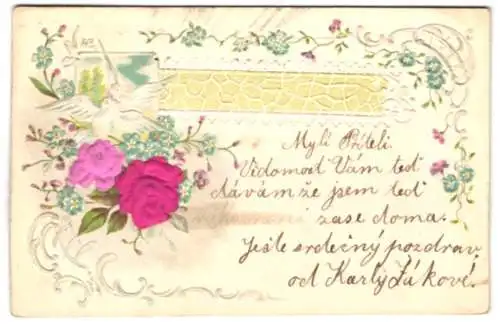 Mylí Příteli.
Vědomost Vám teď
dávám že jsem teď
zase doma.
Ješte srdečný pozdrav
od Karly Žákové.